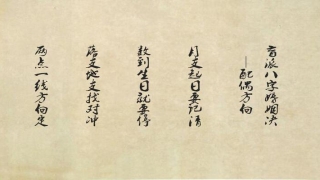 盲派八字婚姻决
—配偶方向
月支起日要记清
数到生日就要停
落支地支找对冲
两点一线方向定